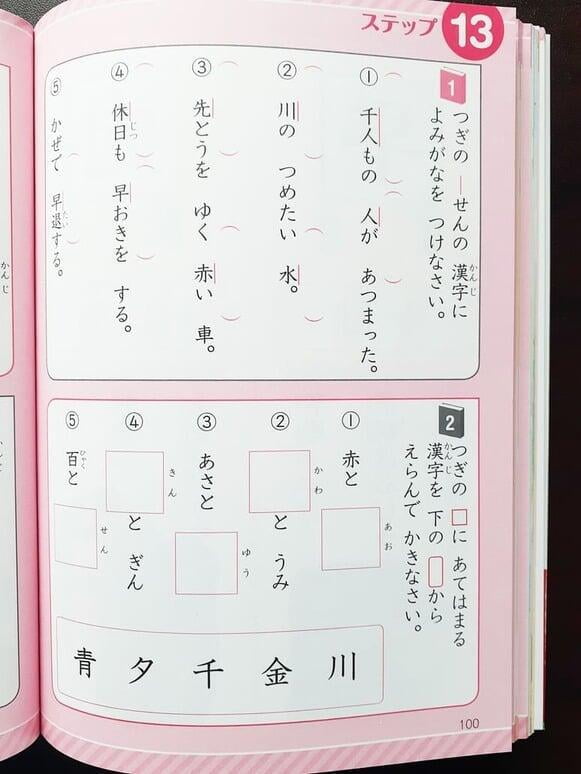 ステップ 13
1
つぎの ―せんの 漢字に
かんじ
よみがなを つけなさい。
① 千人もの 人が あつまった。
② 川の つめたい 水。
③ 先とうを ゆく 赤い 車。
④ 休日も 早おきを する。
じつ
⑤ かぜで 早退する。
たい
2
つぎの □に あてはまる
漢字を 下の から
かんじ
えらんで かきなさい。
① 赤と □
あお
② □と うみ
かわ
③ あさと □
ゆう
④ □と ぎん
きん
⑤ 百と □
ひゃく
せん
川 金 千 夕 青
100
かんじ